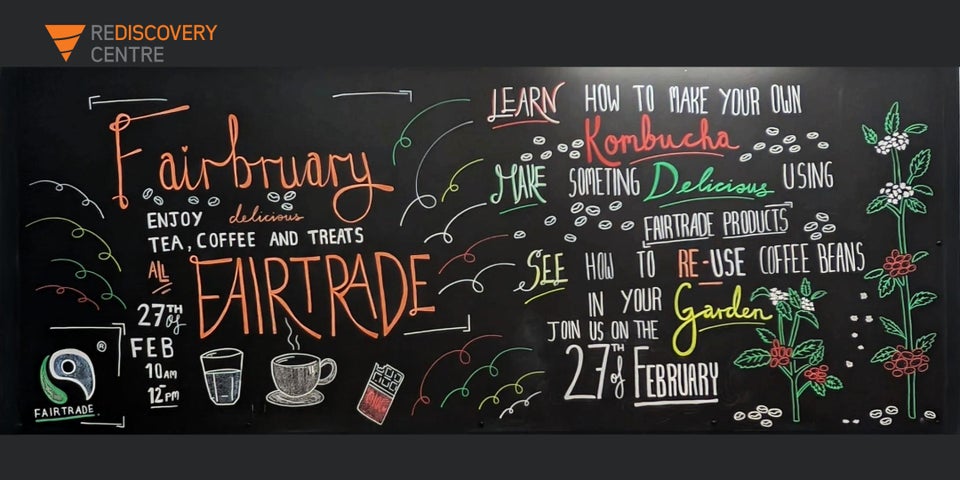 REDISCOVERY
CENTRE
Fairbruary
ENJOY delicious
TEA, COFFEE AND TREATS
ALL FAIRTRADE
27TH of
FEB
10AM
12PM
®
FAIRTRADE
LEARN HOW TO MAKE YOUR OWN
Kombucha
MAKE SOMETING Delicious USING
FAIRTRADE PRODUCTS
SEE HOW TO RE-USE COFFEE BEANS
IN YOUR Garden
JOIN US ON THE
27TH of FEBRUARY